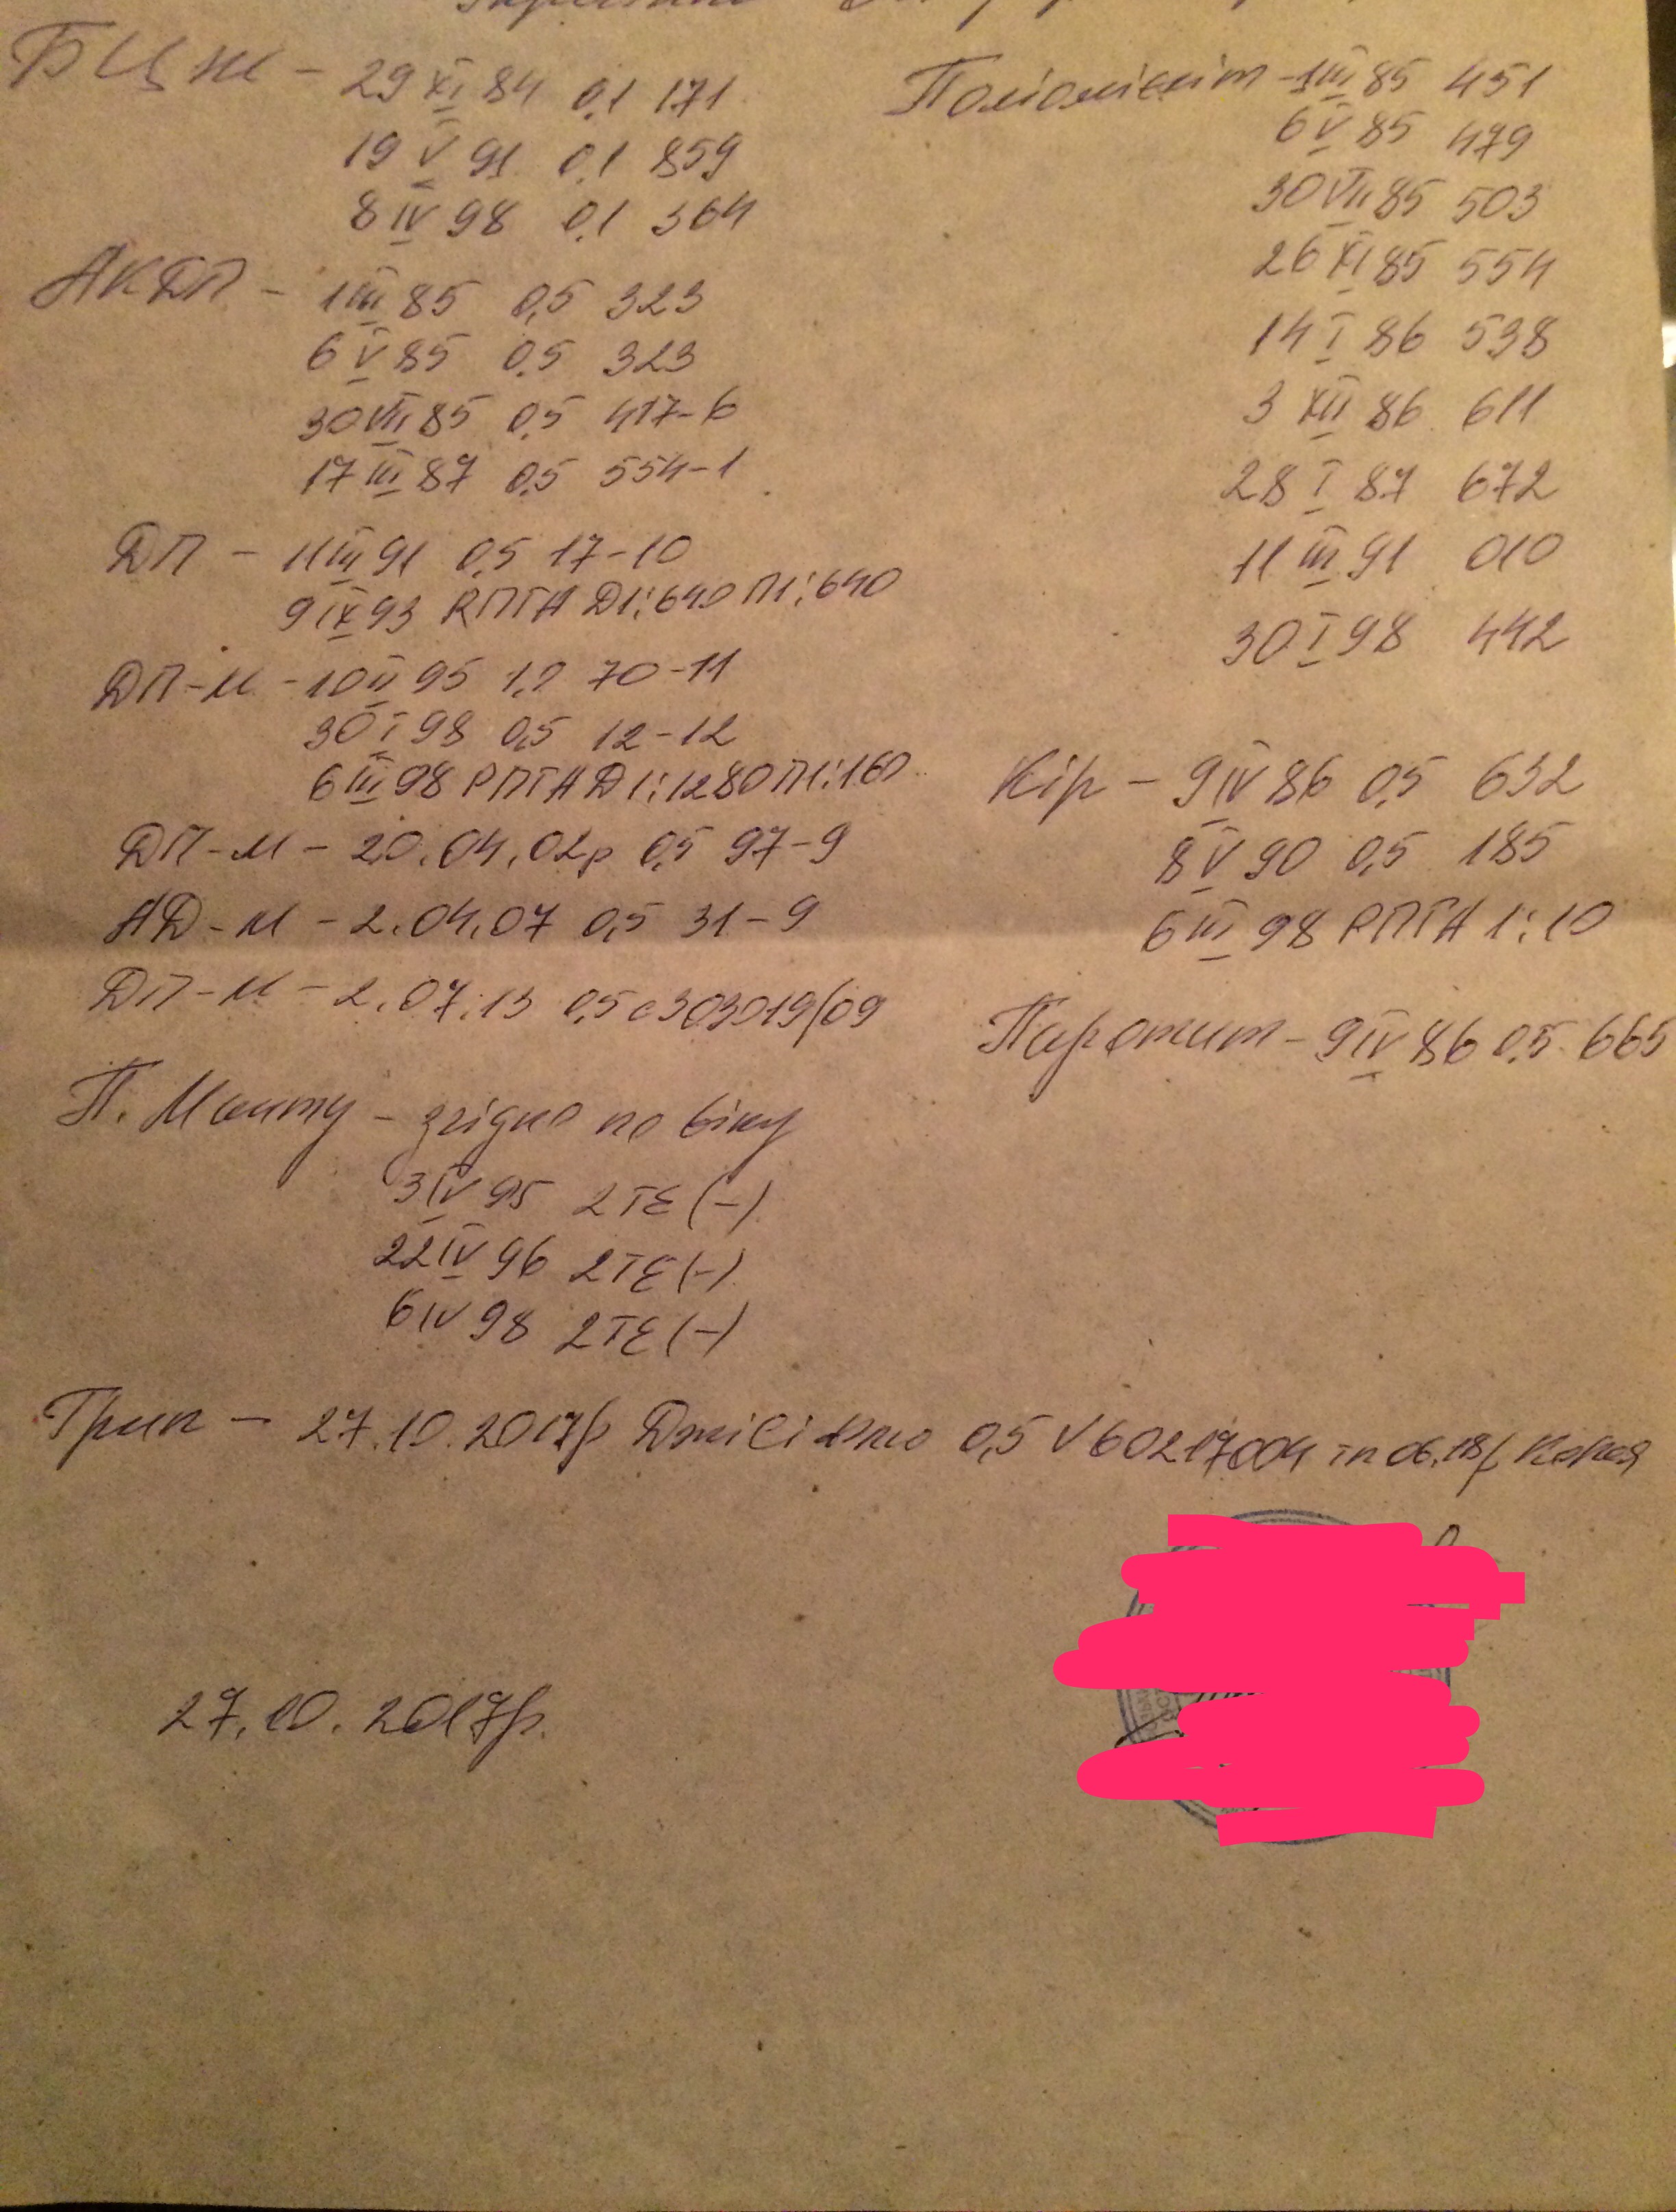 БЦЖ - 29 XI 84 0,1 171
19 V 91 0,1 859
8 IV 98 0,1 364
АКДП - 1 III 85 0,5 323
6 V 85 0,5 323
30 VII 85 0,5 417-6
17 III 87 0,5 554-1
ДП - 11 III 91 0,5 17-10
9 IX 93 РПГА Д1:640 П1:640
ДП-М - 10 II 95 70-11
30 I 98 0,5 12-12
6 III 98 РПГА Д1:1280 П1:160
ДП-М - 20.04.02р 0,5 97-9
АД-М - 2.04.07 0,5 31-9
ДП-М - 2.07.13 0,5 с303019/09
П. Манту - згідно по віку
3 IV 95 2ТЕ (-)
22 IV 96 2ТЕ (-)
6 IV 98 2ТЕ (-)
Поліомієліт - 1 III 85 451
6 V 85 479
30 VII 85 503
26 XI 85 554
14 I 86 538
3 XII 86 611
28 I 87 672
11 III 91 010
30 I 98 442
Кір - 9 IV 86 0,5 632
8 V 90 0,5 185
6 III 98 РПГА 1:10
Паротит - 9 IV 86 0,5 665
Грип - 27.10.2017р 0,5 V60217004 06.18р Корея
27.10.2017р.